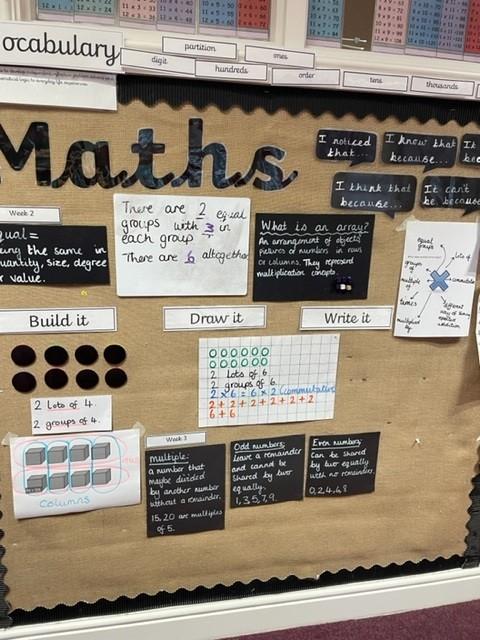 ocabulary
partition
ones
digit
hundreds
order
tens
thousands
Maths
I noticed
that...
I know that
because...
I think that
because...
It can't
be because
Week 2
qual=
ing the same in
uantity, size, degree
r value.
There are 2 equal
groups with 3 in
each group.
There are 6 altogether
What is an array?
An arrangement of objects,
pictures or numbers in rows
or columns. They represent
multiplication concepts.
equal
groups
lots of
groups of
multiple
of
commutative
times
multiplied
by
different
way of showing
repeated
addition
Build it
Draw it
Write it
2 lots of 6
2 groups of 6.
2 x 6 = 6 x 2 (commutative
2 + 2 + 2 + 2 + 2 + 2
6 + 6
2 lots of 4.
2 groups of 4.
columns
Week 3
Multiple:
a number that
may be divided
by another number
without a remainder.
15, 20 are multiples
of 5.
Odd numbers:
leave a remainder
and cannot be
shared by two
equally.
1, 3, 5, 7, 9.
Even numbers:
Can be shared
by two equally
with no remainder.
0, 2, 4, 6, 8